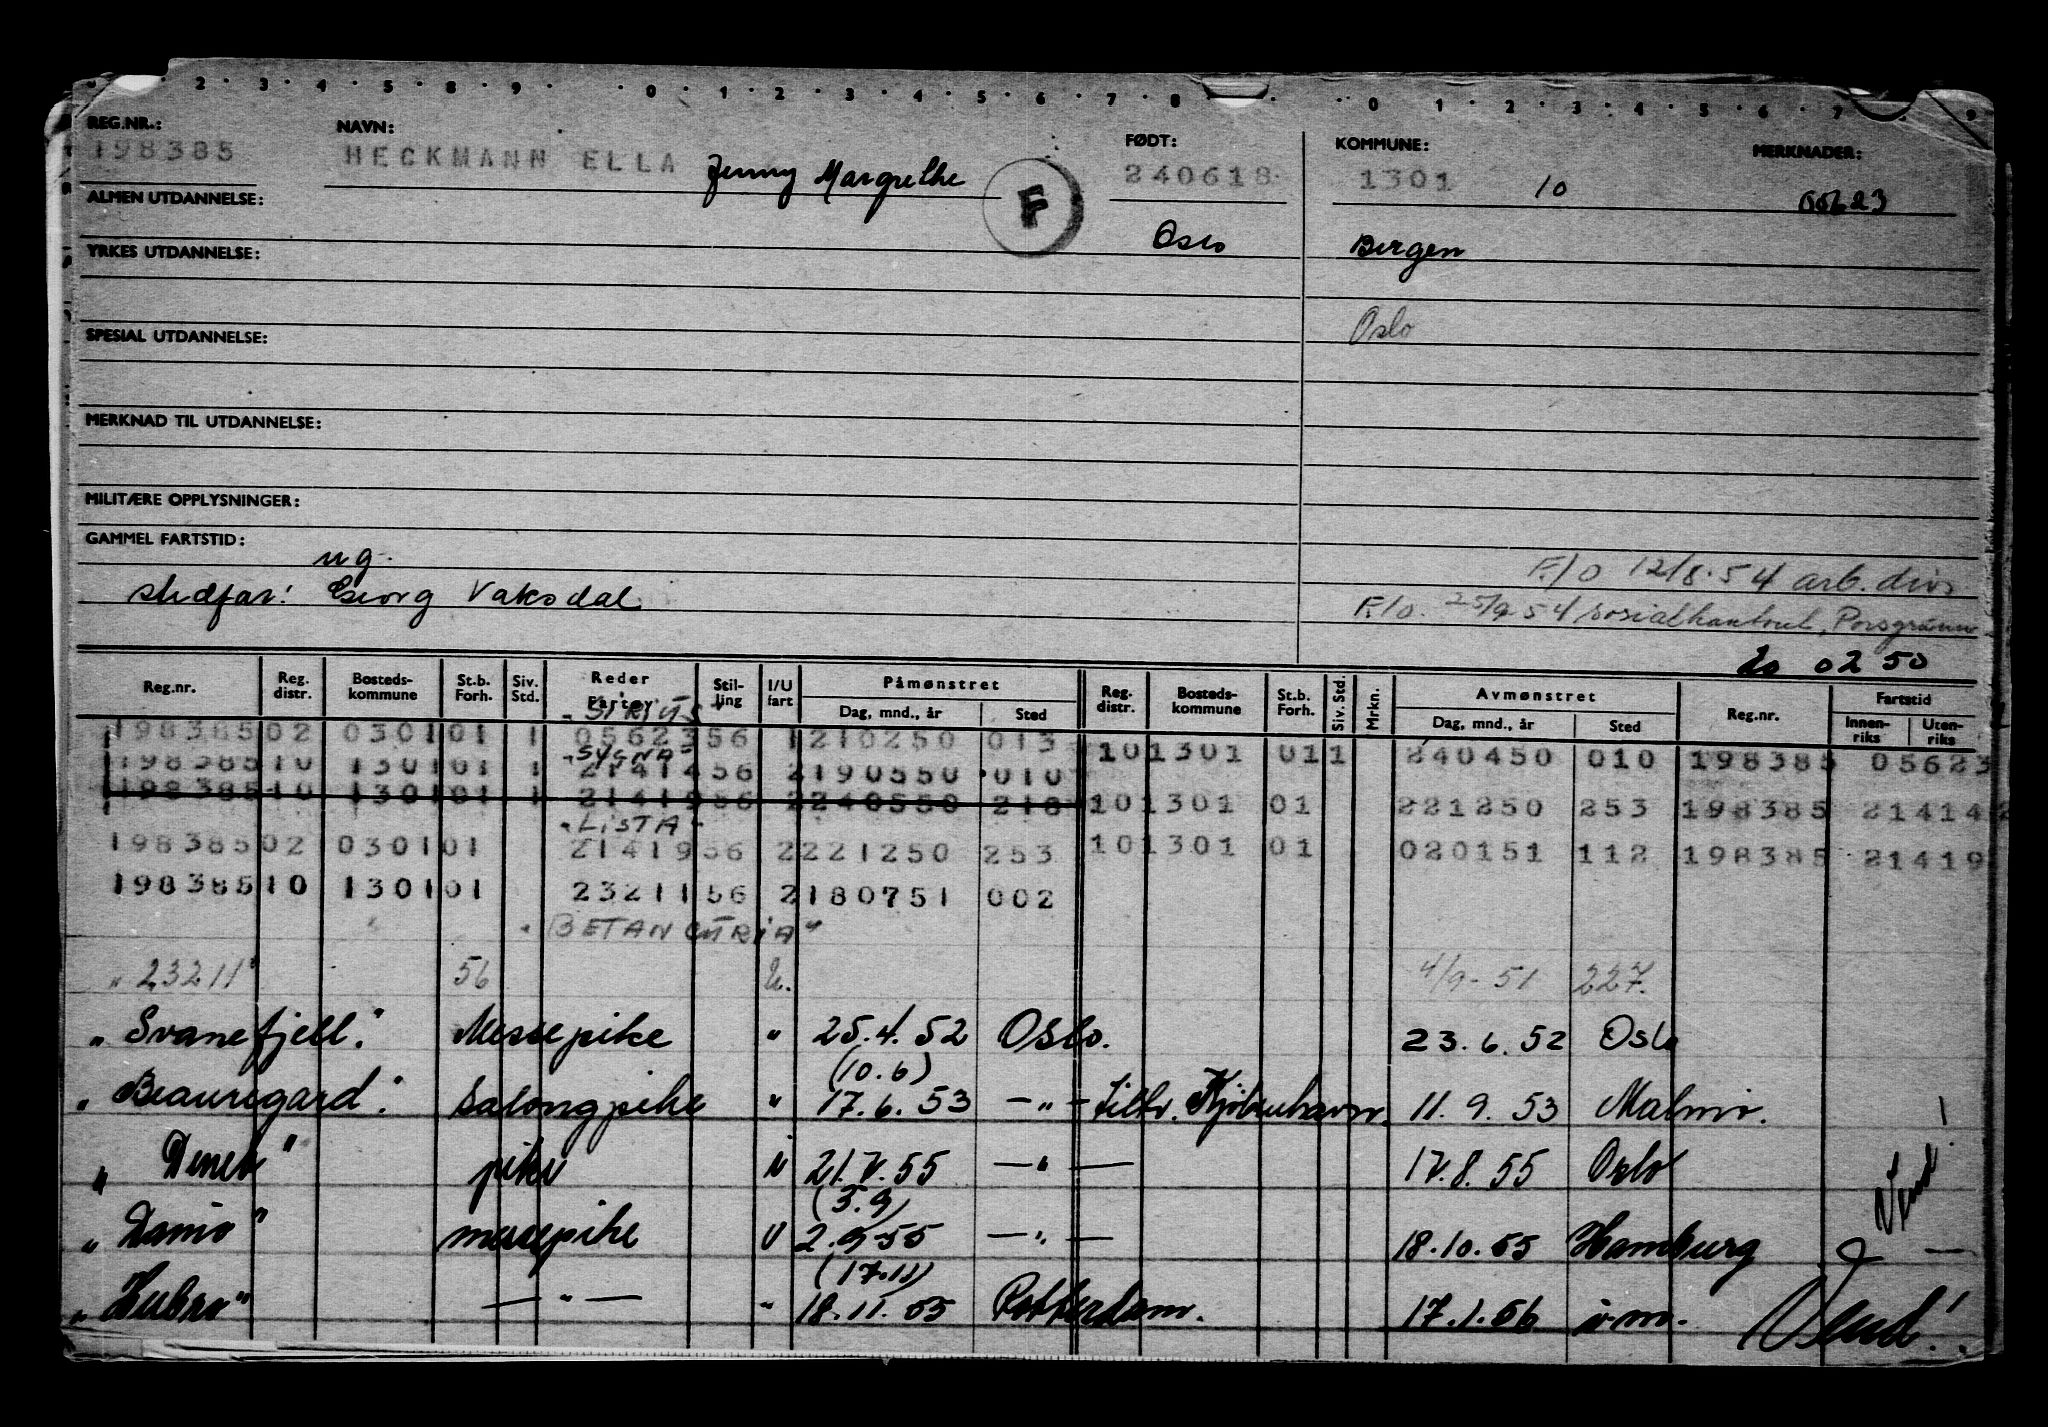 2 · 3 · 4 · 5 · 8 · 9 · · 0 · 1 · 2 · 3 · 4 · 5 · 6 · 7 · 8 · · 0 · 1 · 2 · 3 · 4 · 5 · 6 · 7 · 9
REG.NR.: NAVN: FØDT: KOMMUNE: MERKNADER:
198385 HECKMANN ELLA Jenny Margrethe F 240618 1301 10 05623
ALMEN UTDANNELSE:
Oslo Bergen
YRKES UTDANNELSE:
Oslo
SPESIAL UTDANNELSE:
MERKNAD TIL UTDANNELSE:
MILITÆRE OPPLYSNINGER:
GAMMEL FARTSTID:
ug.
F/o 12/8.54 arb. div.
stedfar: Georg Vaksdal
F/o. 25/9 54 sosialkontoret, Porsgrunn
20 02 50
Reg.nr. Reg. distr. Bosteds-kommune St.b. Forh. Siv. Std. Reder Fartøy Stil-ling I/U fart Påmønstret Dag, mnd., år Sted Reg. distr. Bosteds-kommune St.b. Forh. Siv. Std. Mrkn. Avmønstret Dag, mnd., år Sted Reg.nr. Fartstid Innen-riks Uten-riks
"SIRIUS"
198385 02 0301 01 1 05623 56 1 210250 013 10 1301 01 1 240450 010 198385 05623
"SYGNA"
198385 10 1301 01 1 21414 56 2 190550 010 10 1301 01 221250 253 198385 21414 2
198385 10 1301 01 1 21419 56 2 240550 218
"LISTA"
198385 02 0301 01 21419 56 2 221250 253 10 1301 01 020151 112 198385 21419
198385 10 1301 01 23211 56 2 180751 002
"BETANCURIA"
"23211" 56 U. 4/9-51 227.
"Svanefjell". Messepike " 25.4.52 Oslo. 23.6.52 Oslo
(10.6)
"Beauregard". Salongpike " 17.6.53 —"— Tiltr. Kjøbenhavn. 11.9.53 Malmø.
"Deneb" pike U 21.7.55 —"— 17.8.55 Oslo
(3.9)
"Damo" messepike U 2.9.55 —"— 18.10.55 Hamburg —
(17.11)
"Hubro" —"— " 18.11.55 Rotterdam. 17.1.56 i.m. Vend!
Vend!